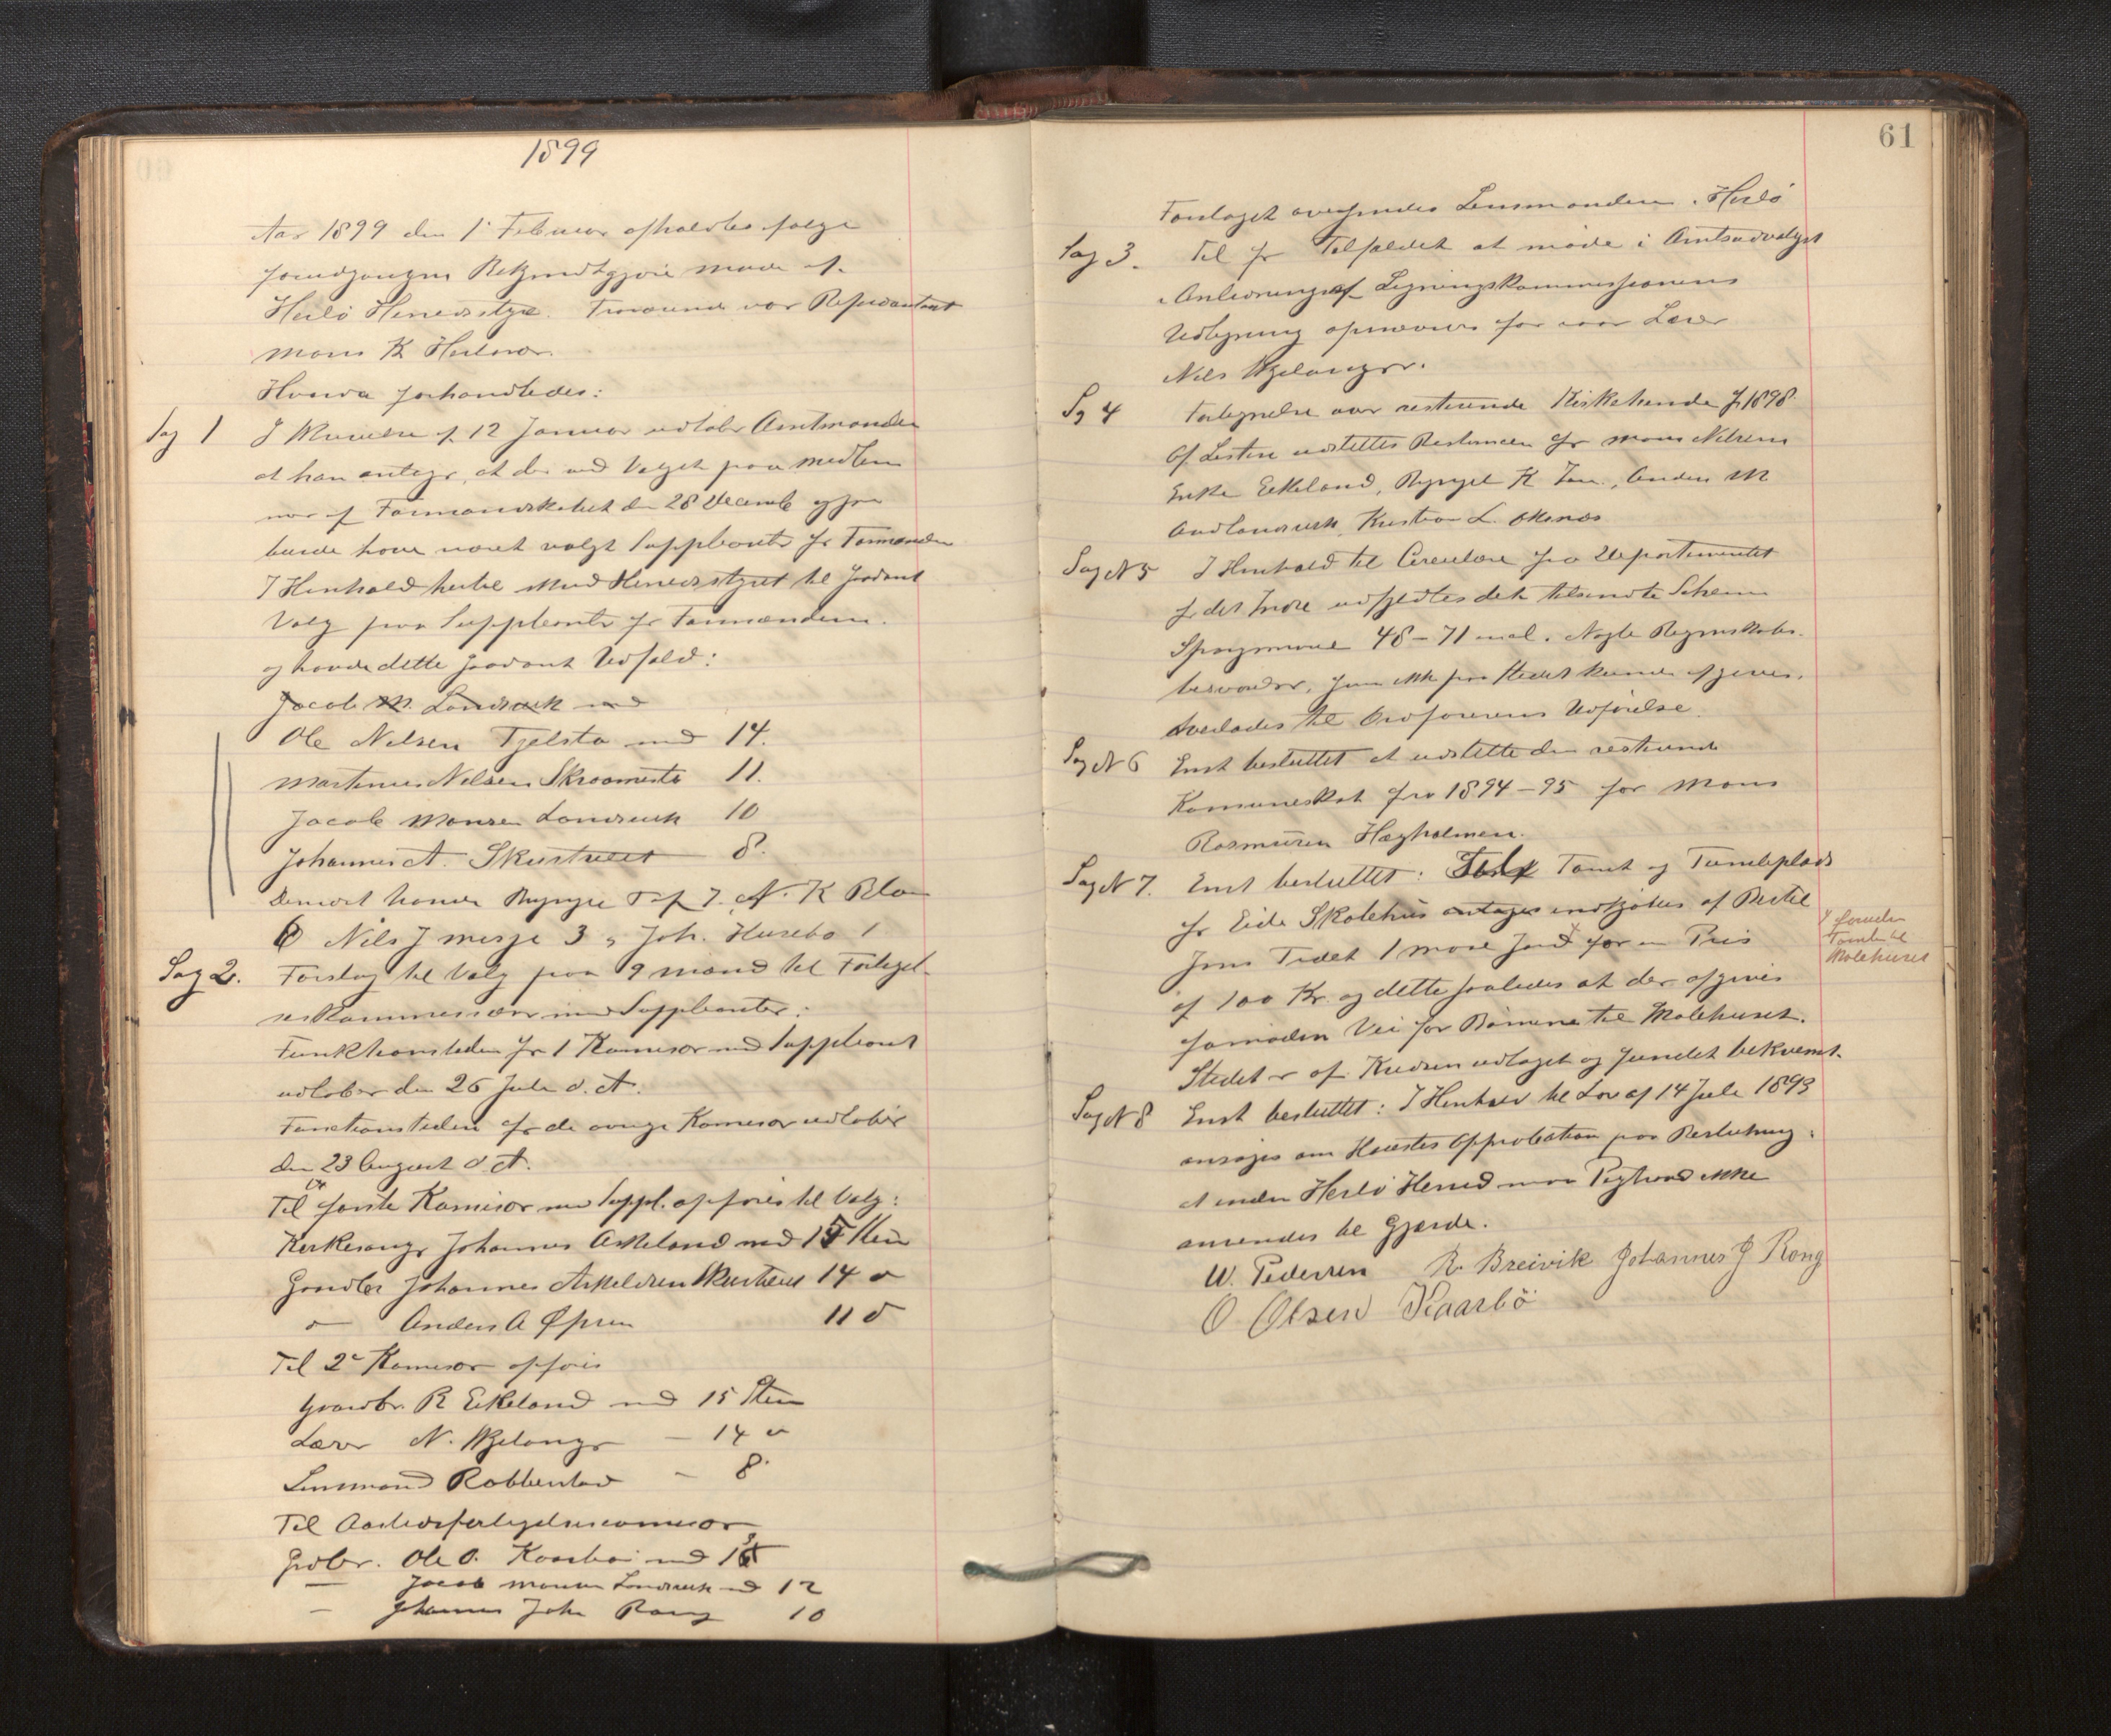 1899
Aar 1899 den 1' Februar afholdtes følge
foredgangne Bekjendtgjøre møde af
Herlø Herredsstyre. Fraværende var Repræsentant
Mons K Herlevær.
Hvorda forhandledes:
Sag 1 I Skrivelse af 12 Januar udtaler Amtmanden
at han antager, at der ved Valget paa Medlem
mer af Formandskabet den 28 Decemb
burde have været valgt Suppleanter for Formænden
I Henhold hertil skred Herredsstyret til saadant
Valg paa Suppleanter for Formændene.
og havde dette saadant Udfald:
Jacob M. Landsvik med
Ole Nelsen Tjelsto med 14.
Martinus Nelsen Skraamestø 11.
Jacob Monsen Landsvik 10
Johannes A. Skurtveit 8.
Dernæst havde 7. N. K Blom
6 Nils J Misje 3 Joh. Husebø 1
Sag 2. Forslag til Valg paa 9 Mænd til Forligel-
seskommissær med Suppleanter:
Funktionstiden for 1 Komisær med Suppleant
udløber den 26 Juli d. A.
Functionstiden for de øvrige Komisær udløber
den 23 August d A.
Til første Komisær med Suppl. opføres til Valg:
Kirkesanger Johannes Askeland med 15 Stem
Gaardbr Johannes Askeldsen Skurtveit 14 "
" Anders A Øpsen 11 "
Til 2' Komisær opføres
Gaardbr. R Eikeland med 15 Stem
Lærer N. Kjelanger - 14 "
Lensmand Rabbenstad - 8.
Til
Grdbr. Ole O. Kaarbø med
— Jacob Monsen Landsvik med 12
— Johannes Joh Rong 10
61
Forslaget oversendes Lensmanden i Herlø
Sag 3. Til for Tilfældet at møde i Amtsudvalget
i Anledning af Ligningskommissionens
Udligning opnævnes for vor Lærer
Nils Kjelanger.
Sg 4 Fortegnelse over resterende Kirketiende f. 1898.
Af Listen udslettes Restancen for Mons Nilsens
Enke Eikeland, K Anders M
Landsvik, Kristian L.
Sag N 5 I Henhold til Circulære fra Departementet
for det Indre udfyldtes det tilsendte Schema
Spørgsmaal 48 – 71 incl. Nogle Regnskabs-
besvarelser, som ikke paa Stedet kunde afgives,
overlades til Ordførerens Udførelse.
Sag N 6 Enst besluttet at udslette den resterende
Komuneskat fra 1894 – 95 for Mons
Rasmusen Hagholmen.
Sag N 7. Enst besluttet: Tomt og Tumleplads
for Eide Skolehus antages indkjøbes af Bertel
Jons Tidet 1 maal Jord for en Pris
af 100 Kr. og dette saaledes at der afgives
fornøden Vei for Børnene til Skolehuset.
Stedet er af Kredsen udtaget og fundet bekvemt.
foruden
Tomten til
Skolehuset
Sag N 8 Enst besluttet: I Henhold til Lov af 14 Juli 1893
ansøges om Høiestes Approbation paa Beslutning:
at inden Herlø Herred maa Pigtraad ikke
anvendes til Gjærde.
W. Pedersen R. Breivik Johannes J Rong
O. Olsen Kaarbö